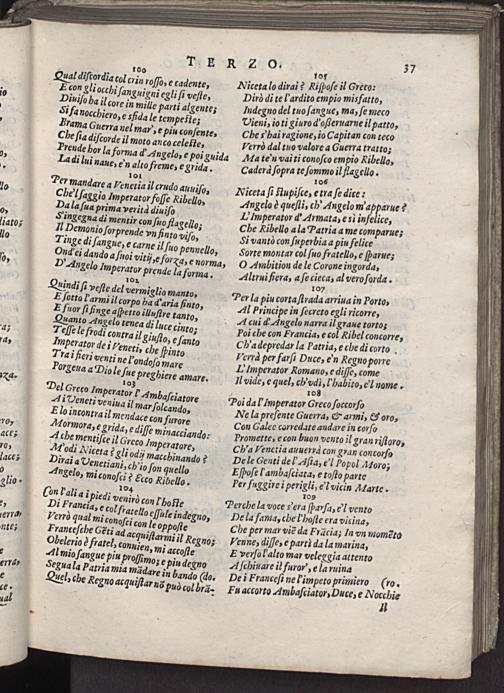 TERZO.
37
100
Qual discordia col crin rosso, e cadente,
E con gli occhi sanguigni egli si veste,
Diuiso ha il core in mille parti algente;
Si fa nocchiero, e sfida le tempeste;
Brama Guerra nel mar', e piu consente,
Che sia discorde il moto anco celeste,
Prende hor la forma d'Angelo, e poi guida
La di lui naue, e'n alto freme, e grida.
101
Per mandare a Venetia il crudo auuiso,
Che'l saggio Imperator fosse Ribello,
Da la sua prima verità diuiso
S'ingegna di mentir con suo flagello;
Il Demonio sorprende vn finto viso,
Tinge di sangue, e carne il suo pennello,
Ond'ei dando a suoi vitij, e forza, e norma,
D'Angelo Imperator prende la forma.
102
Quindi si veste del vermiglio manto,
E sotto l'armi il corpo ha d'aria finto,
E fuor si finge aspetto illustre tanto,
Quanto Angelo tenea di luce cinto;
Tesse le frodi contra il giusto, e santo
Imperator de i Veneti, che spinto
Tra i fieri venti ne l'ondoso mare
Porgeua a Dio le sue preghiere amare.
103
Del Greco Imperator l'Ambasciatore
A i Veneti veniua il mar solcando,
E lo incontra il mendace con furore
Mormora, e grida, e disse minacciando:
A che mentisce il Greco Imperatore,
M'odi Niceta? gli odij macchinando?
Dirai a Venetiani, ch'io son quello
Angelo, mi conosci? Ecco Ribello.
104
Con l'ali a i piedi venirò con l'hoste
Di Francia, e col fratello essule indegno,
Verrò qual mi conosci con le opposte
Francesche Gẽti ad acquistarmi il Regno;
Obelerio è fratel, conuien, mi accoste
Al mio sangue piu prossimo; e piu degno
Segua la Patria mia mãdare in bando (do.
Quel, che Regno acquistar nõ può col brã-
105
Niceta lo dirai? Rispose il Greco:
Dirò di te l'ardito empio misfatto,
Indegno del tuo sangue, ma, se meco
Vieni, io ti giuro d'osseruarne il patto,
Che s'hai ragione, io Capitan con teco
Verrò dal tuo valore a Guerra tratto;
Ma te'n vai ti conosco empio Ribello,
Caderà sopra te sommo il flagello.
106
Niceta si stupisce, e tra se dice:
Angelo è questi, ch'Angelo m'apparue?
L'Imperator d'Armata, e sì infelice,
Che Ribello a la Patria a me comparue;
Si vantò con superbia a piu felice
Sorte montar col suo fratello, e sparue;
O Ambition de le Corone ingorda,
Altrui fiera, a se cieca, al vero sorda.
107
Per la piu corta strada arriua in Porto,
Al Principe in secreto egli ricorre,
A cui d'Angelo narra il graue torto;
Poi che con Francia, e col Ribel concorre,
Ch'a depredar la Patria, e che di corto
Verrà per farsi Duce, e'n Regno porre
L'Imperator Romano, e disse, come
Il vide, e quel, ch'vdì, l'habito, e'l nome.
108
Poi da l'Imperator Greco soccorso
Ne la presente Guerra, & armi, & oro,
Con Galee corredate andare in corso
Promette, e con buon vento il gran ristoro,
Ch'a Venetia auuerrà con gran concorso
De le Genti de l'Asia, e'l Popol Moro;
Espose l'ambasciata, e tosto parte
Per fuggire i perigli, e'l vicin Marte.
109
Perche la voce s'era sparsa, e'l vento
De la fama, che l'hoste era vicina,
Che per mar viẽ da Frãcia; In vn momẽto
Venne, disse, e partì da la marina,
E verso l'alto mar veleggia attento
A schiuare il furor', e la ruina
De i Francesi ne l'impeto primiero (ro.
Fu accorto Ambasciator, Duce, e Nocchie
Il